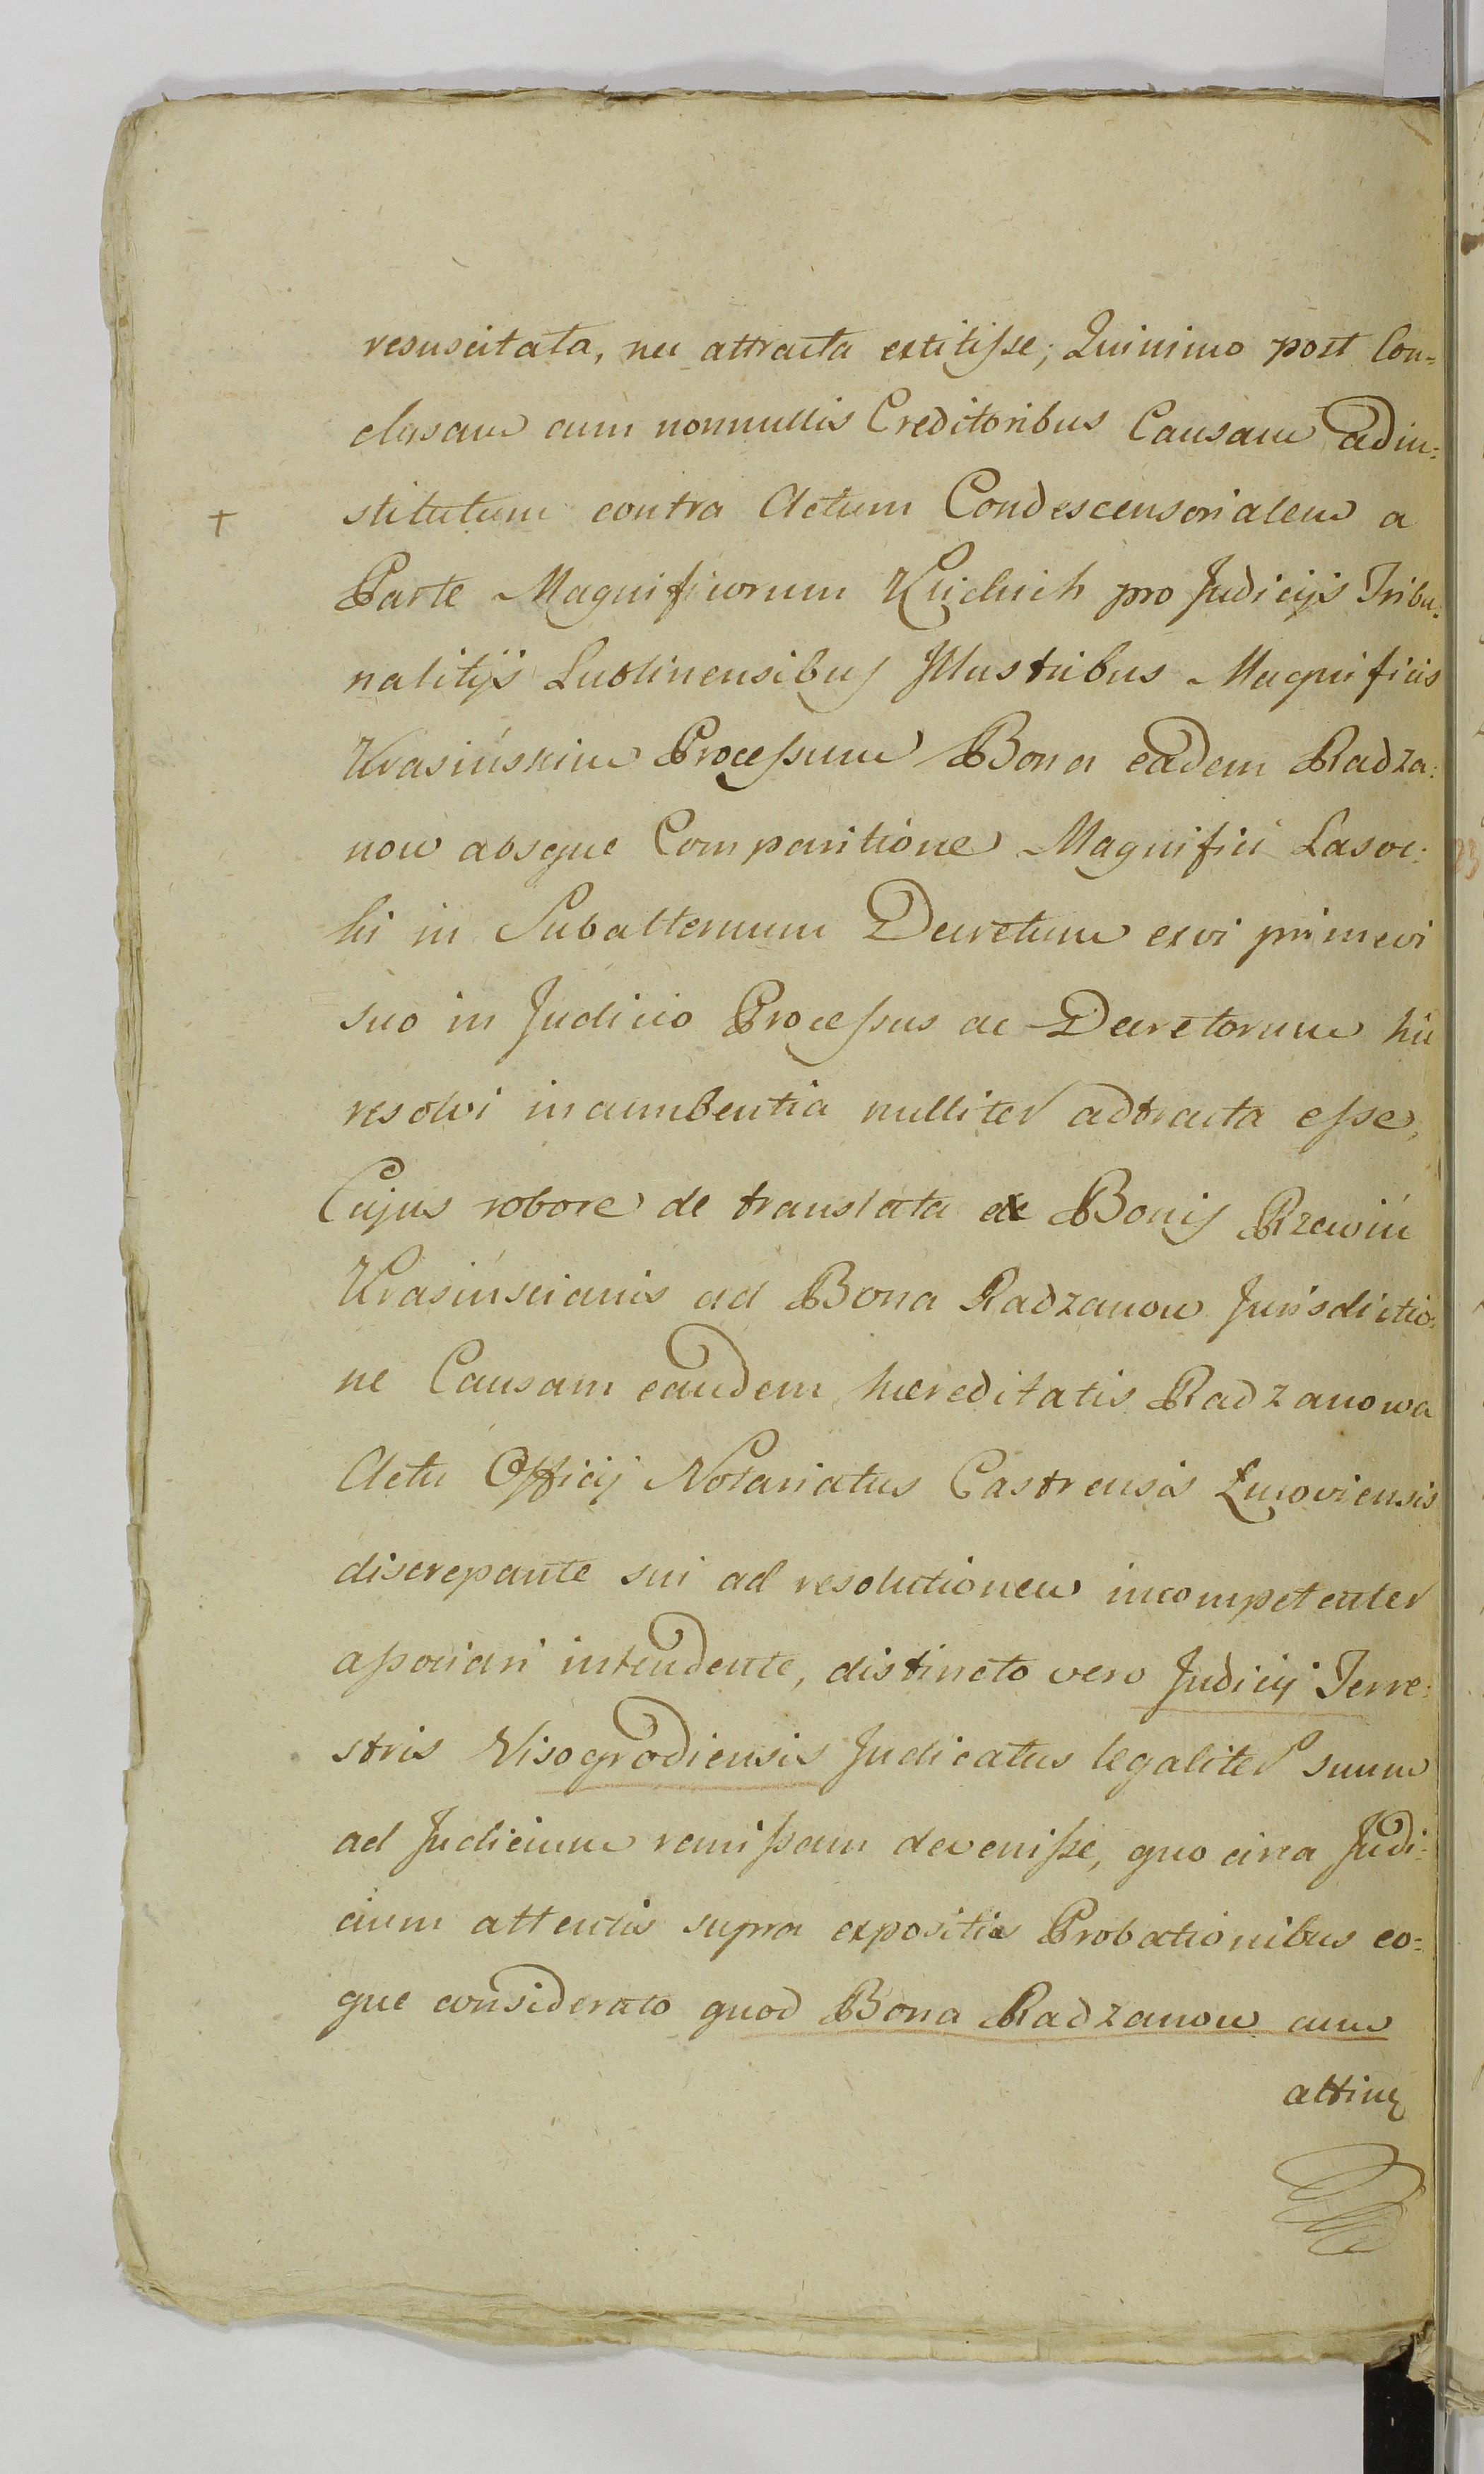 resuscitata, nec attracta extitisse; Quinimo post Con=
clusam cum nonnullis Creditoribus Causam ad in=
stitutum contra Actum Condescensorialem a
+
Parte Magnificorum Kicluch pro Judicijs Tribu=
nalitijs Lublinensibus Illustribus Magnificis
Krasińskim Processum Bona eadem Radza=
now absque Comparitione Magnifici Lasoc=
ki in Subalternum Decretum ex vi primevi
suo in Judicio Processus ac Decretorum hic
resolvi incumbentia nulliter adtracta esse,
Cujus robore de translata ex Bonis Rzewin
Krasinscianis ad Bona Radzanow Jurisdictio=
ne Causam eandem haereditatis Radzanowa
Actu Officij Notariatus Castrensis Łucoviensis
discrepante sui ad resolutionem incompetenter
associari intendente, distincto vero Judicij Terre=
stris Visogrodiensis Judicatus legaliter suum
ad Judicium remissam devenisse, quo circa Judi=
cium attentis supra expositis Probationibus eo=
que considerato quod Bona Radzanow cum
attinę